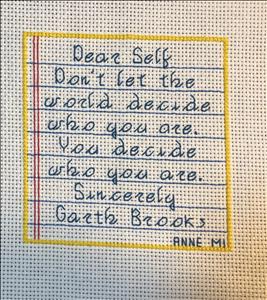 Dear Self
Don't let the
world decide
who you are.
You decide
who you are.
Sincerely
Garth Brooks
ANNE MI